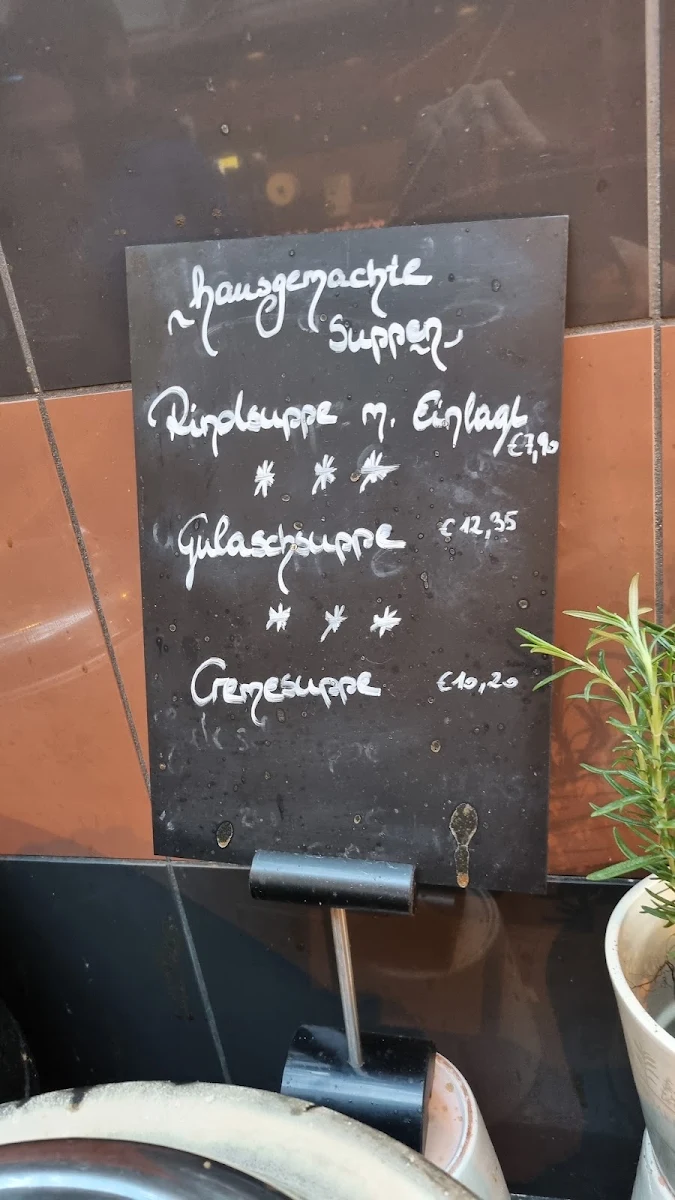 ~ hausgemachte
Suppen ~
Rindsuppe m. Einlage
€7,90
* * *
Gulaschsuppe €12,35
* * *
Cremesuppe €10,20